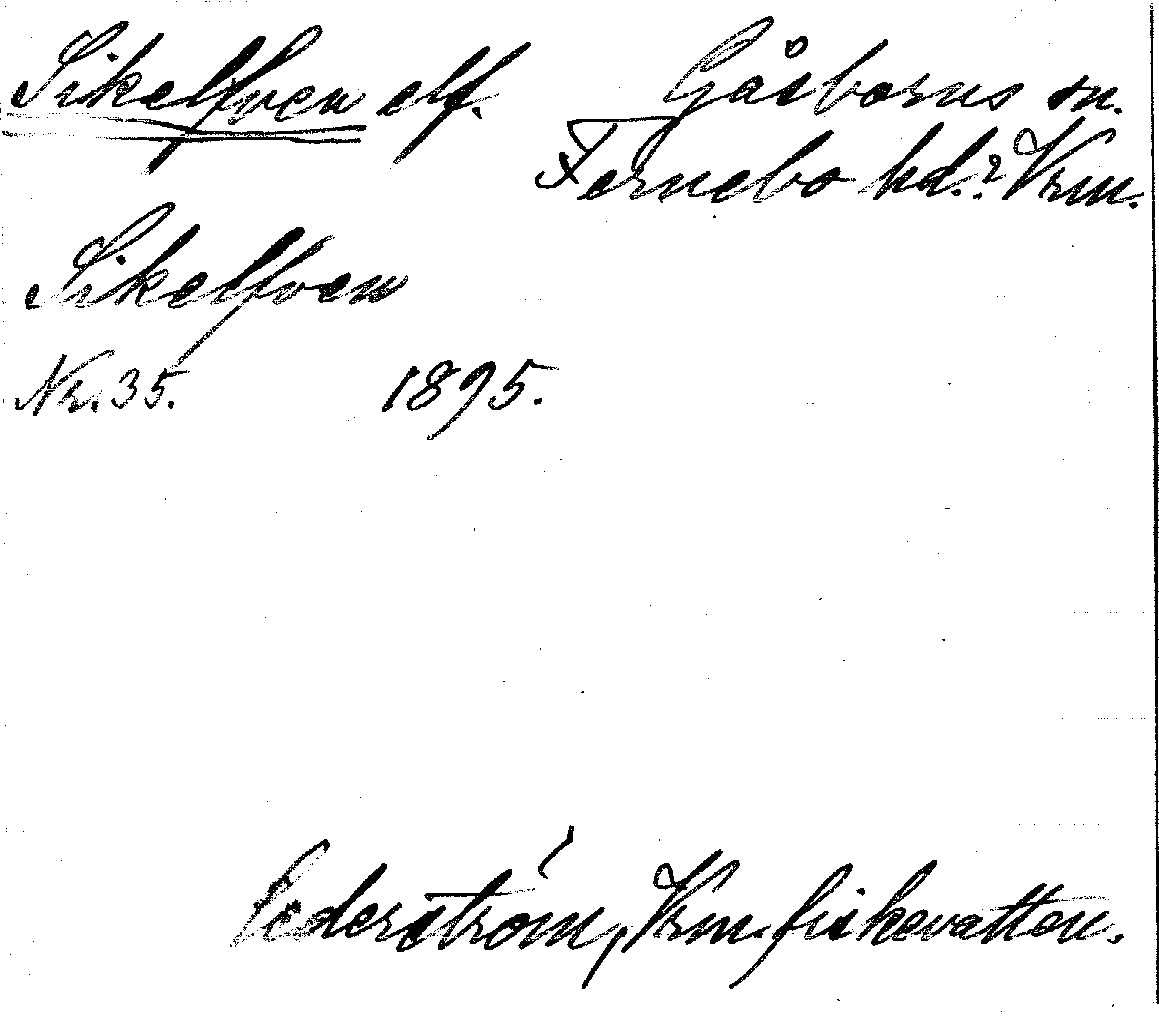 Sikelfven elf. Gåsborns sn.
Fernebo hd.? Vrm.
Sikelfven
Nr. 35. 1895.
Cederström, Vrm. fiskevatten.